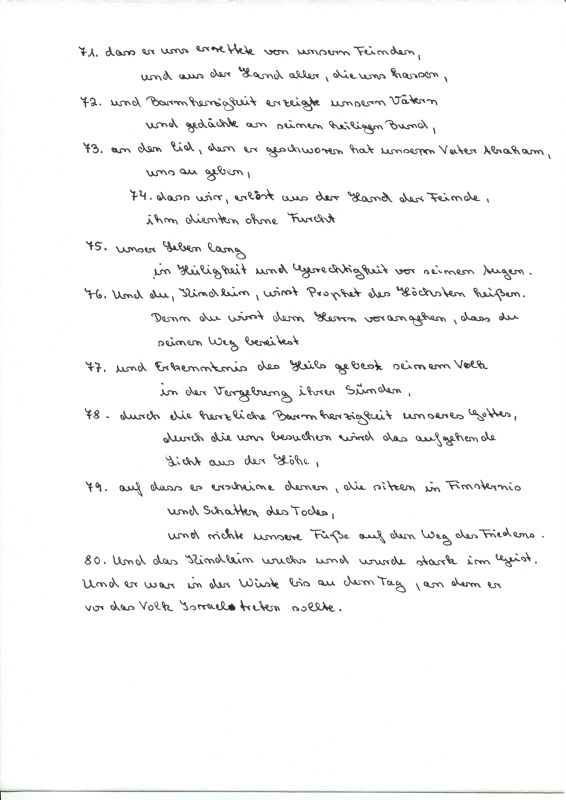 71. dass er uns errettete von unsern Feinden,
und aus der Hand aller, die uns hassen,
72. und Barmherzigkeit erzeigte unsern Vätern
und gedächte an seinen heiligen Bund,
73. an den Eid, den er geschworen hat unserm Vater Abraham,
uns zu geben,
74. dass wir, erlöst aus der Hand der Feinde,
ihm dienten ohne Furcht
75. unser Leben lang
in Heiligkeit und Gerechtigkeit vor seinen Augen.
76. Und du, Kindlein, wirst Prophet des Höchsten heißen.
Denn du wirst dem Herrn vorangehen, dass du
seinen Weg bereitest
77. und Erkenntnis des Heils gebest seinem Volk
in der Vergebung ihrer Sünden,
78. durch die herzliche Barmherzigkeit unseres Gottes,
durch die uns besuchen wird das aufgehende
Licht aus der Höhe,
79. auf dass es erscheine denen, die sitzen in Finsternis
und Schatten des Todes,
und richte unsere Füße auf den Weg des Friedens.
80. Und das Kindlein wuchs und wurde stark im Geist.
Und er war in der Wüste bis zu dem Tag, an dem er
vor das Volk Israel treten sollte.